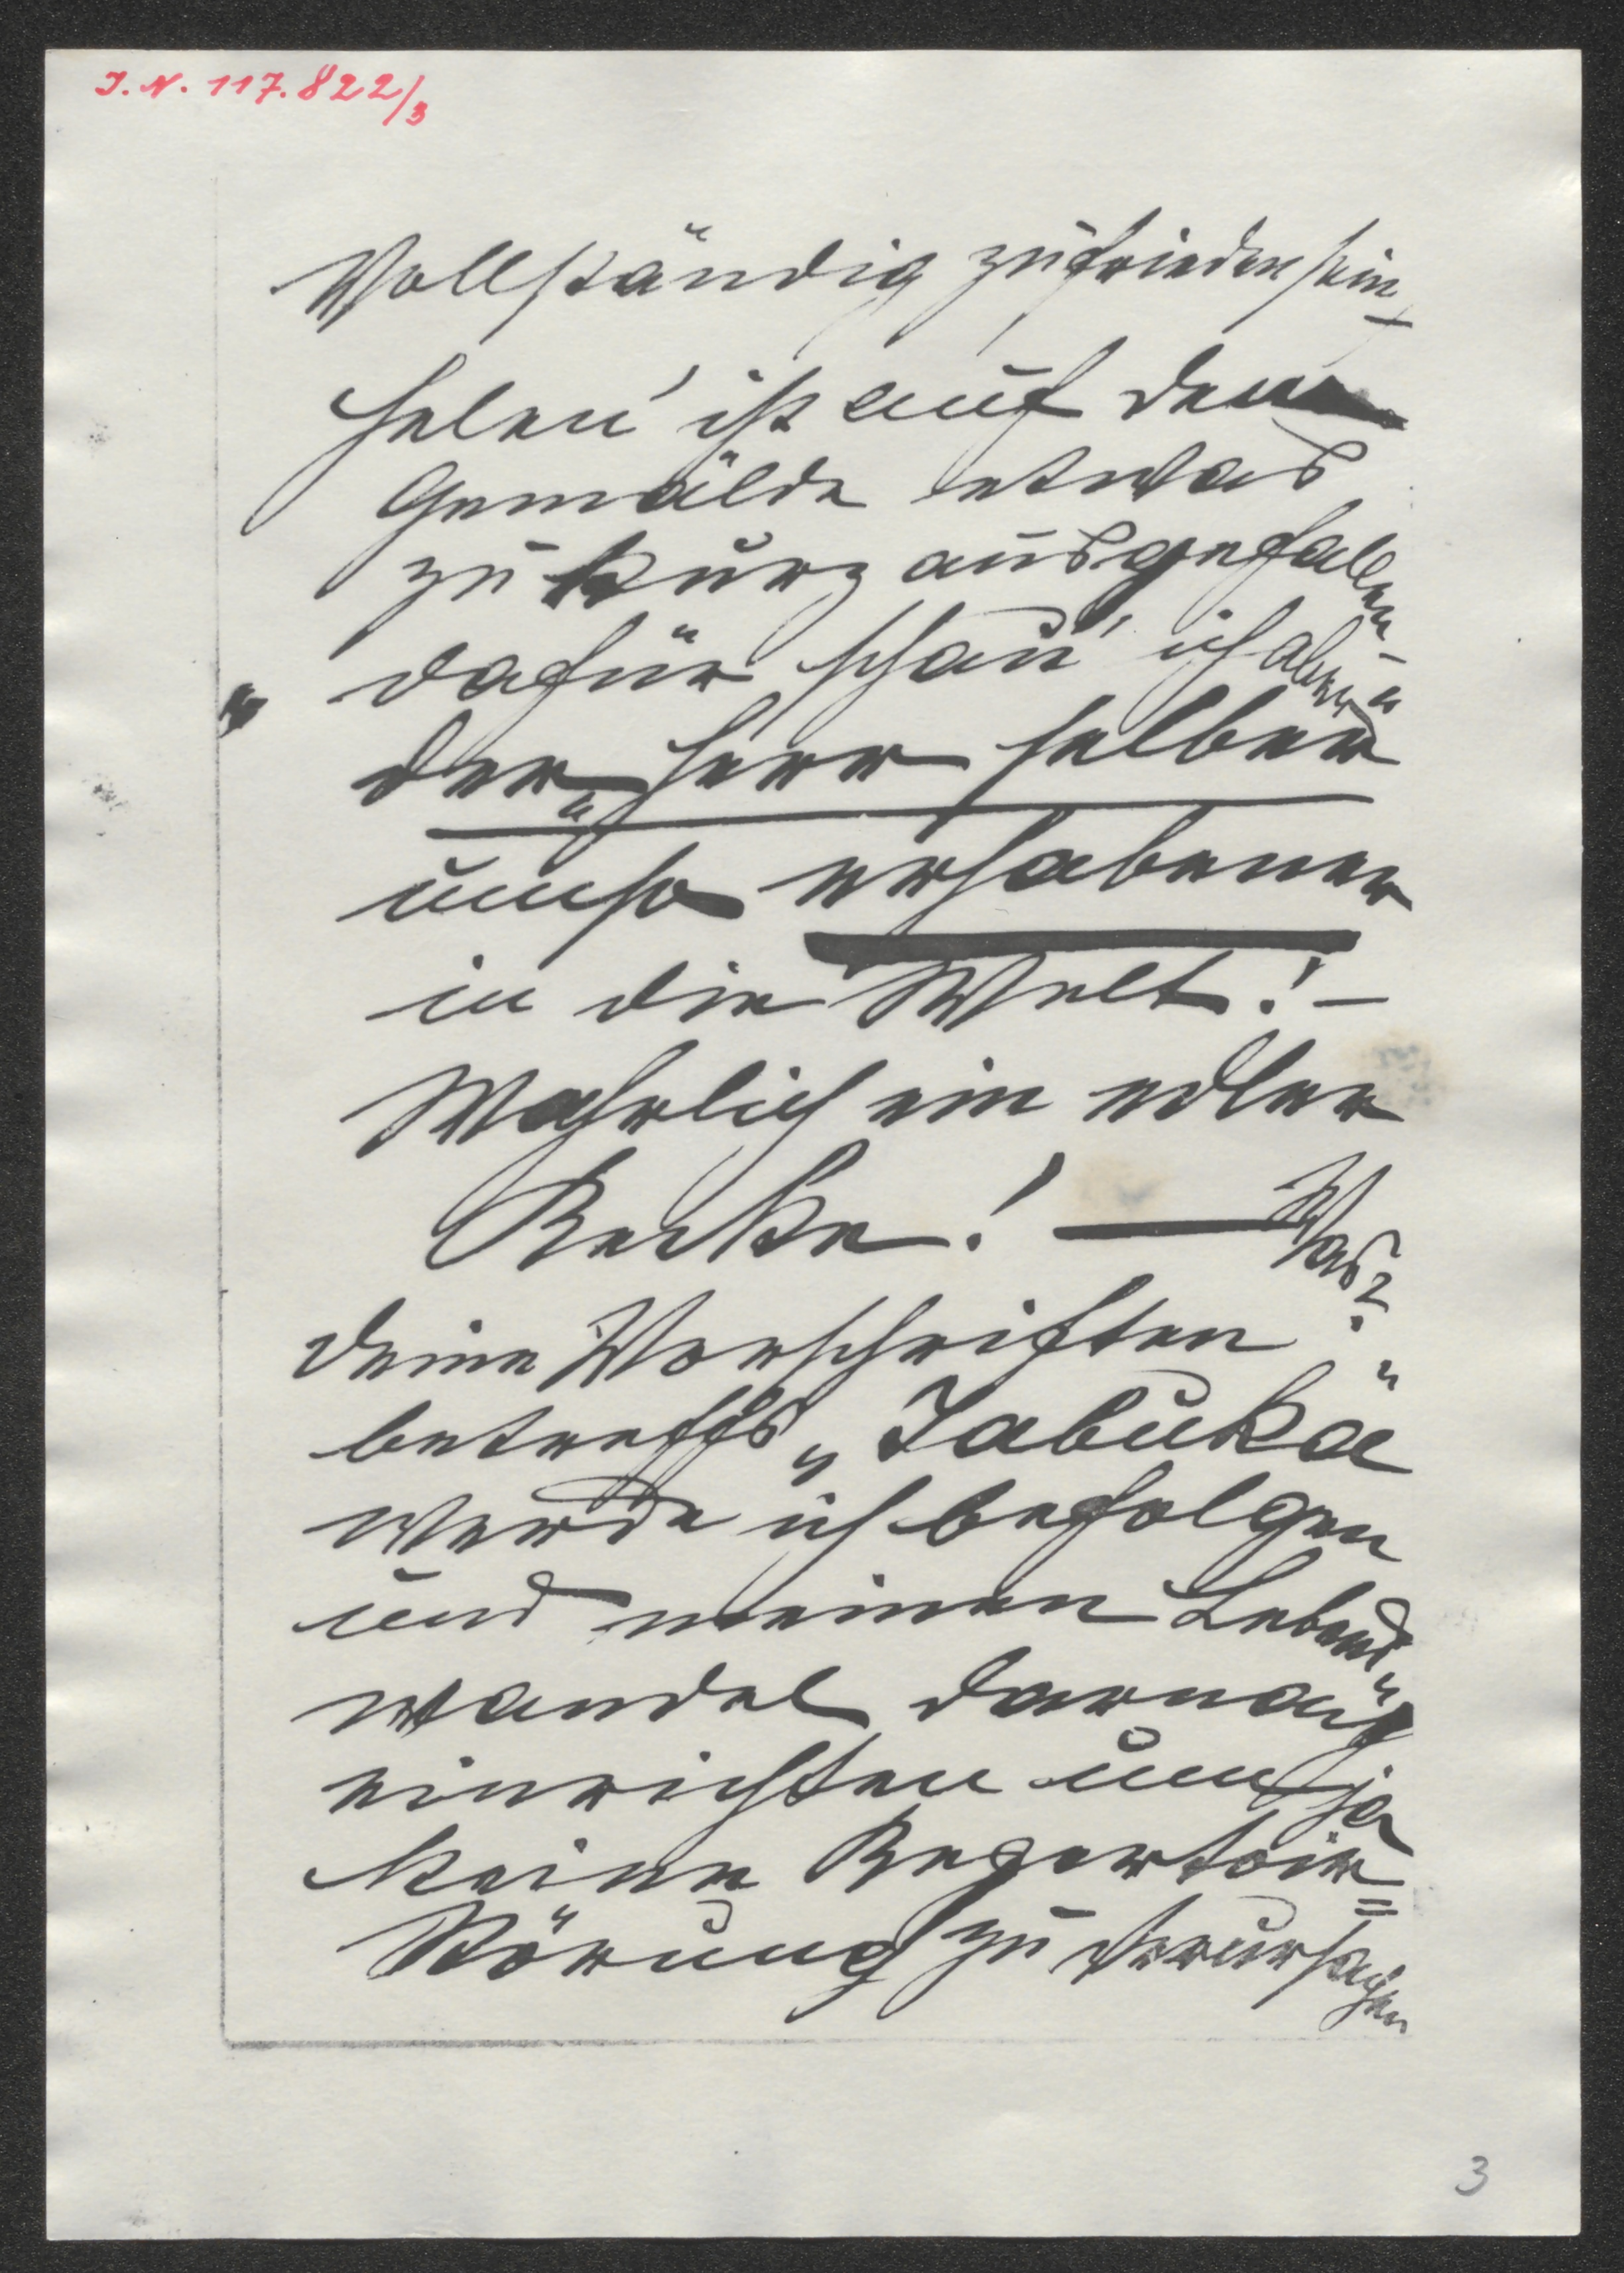 J.N. 117.822/3
Vollständig zufrieden sein
Helen' ist auf dem
Gemälde etwas
zu kurz ausgefallen –
dafür schau' ich aber „
der Herr selber"
umso erhabener
in die Welt! –
Wahrlich ein edler
Recke! — Was?
Deine Vorschriften
betreffs „Jabuka"
werde ich befolgen
und meinen Lebens„
wandel darnach
einrichten um ja
keine Repertoir=
Störung zu verursachen
3